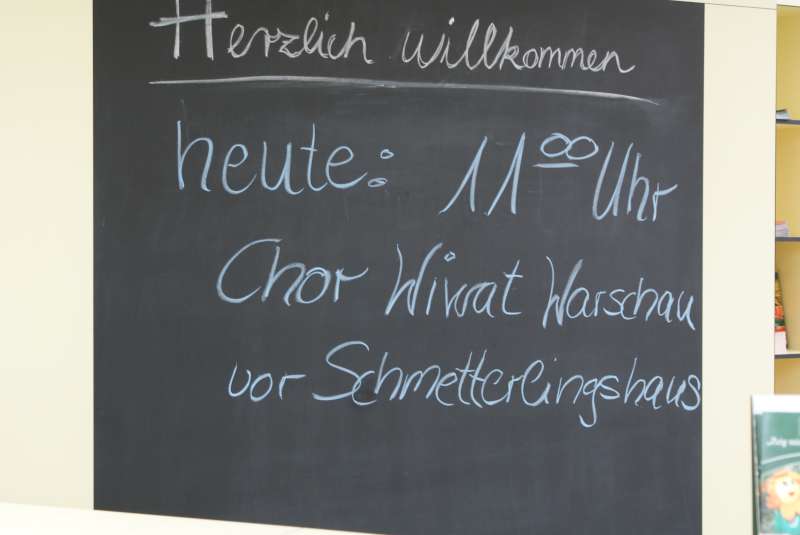 Herzlich willkommen
heute: 11 00 Uhr
Chor Wiwat Warschau
vor Schmetterlingshaus